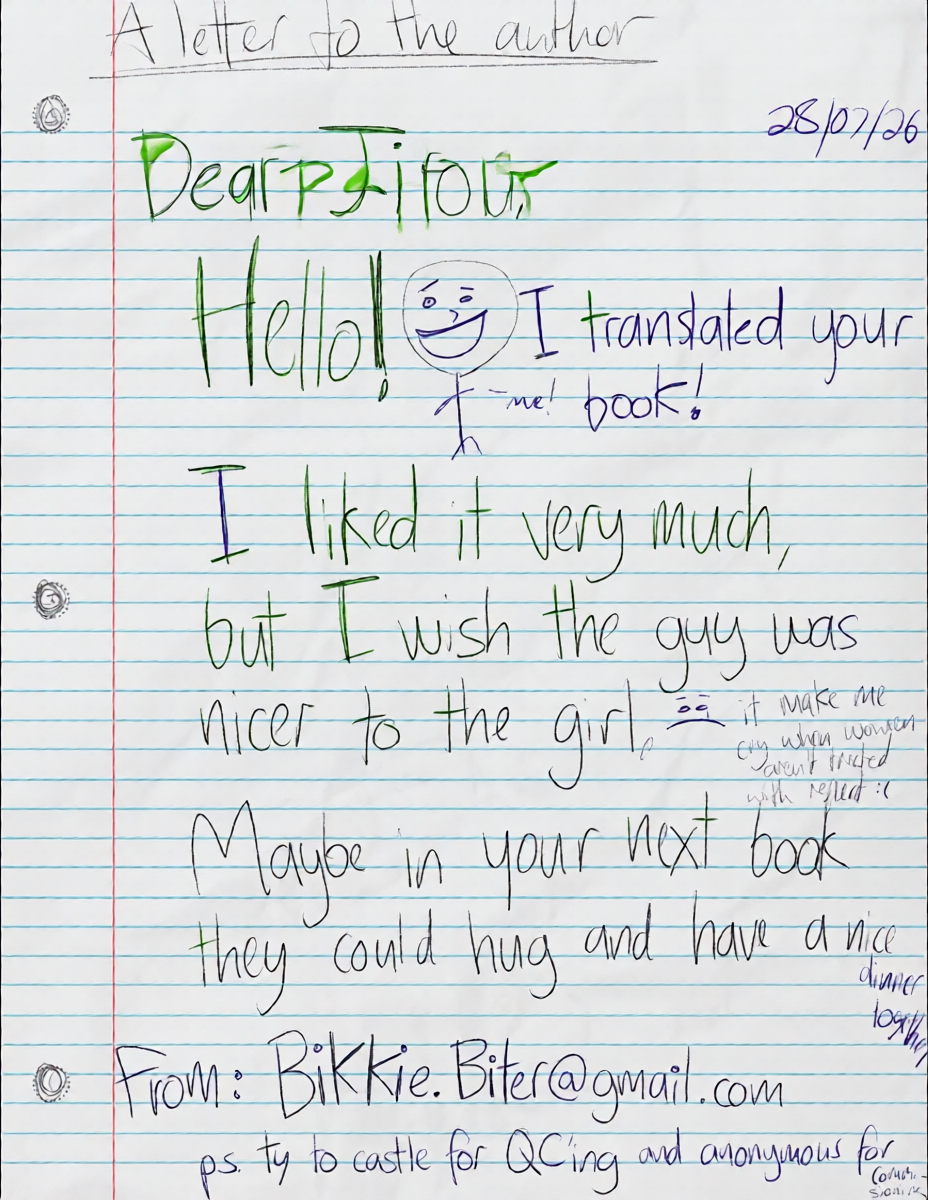 A letter to the author
28/07/26
Dear Jirou,
Hello! I translated your
-me! book!
I liked it very much,
but I wish the guy was
nicer to the girl.
it make me
cry when women
aren't treated
with respect :(
Maybe in your next book
they could hug and have a nice
dinner
together
From: Bikkie.Biter@gmail.com
ps. ty to castle for QC'ing and anonymous for